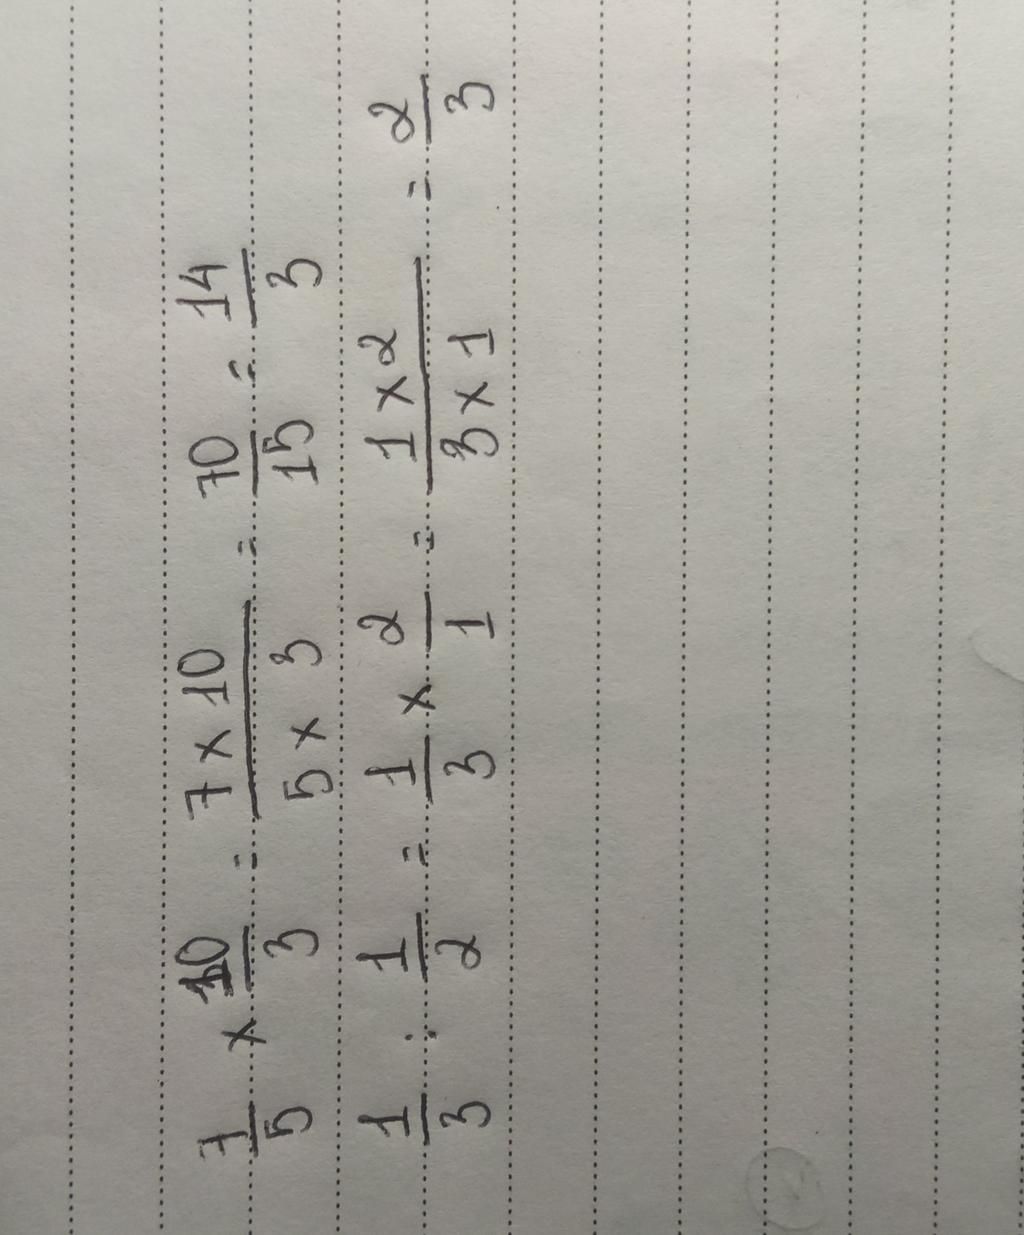 7/5 × 10/3 = 7 × 10 / 5 × 3 = 70/15 = 14/3
1/3 : 1/2 = 1/3 × 2/1 = 1 × 2 / 3 × 1 = 2/3